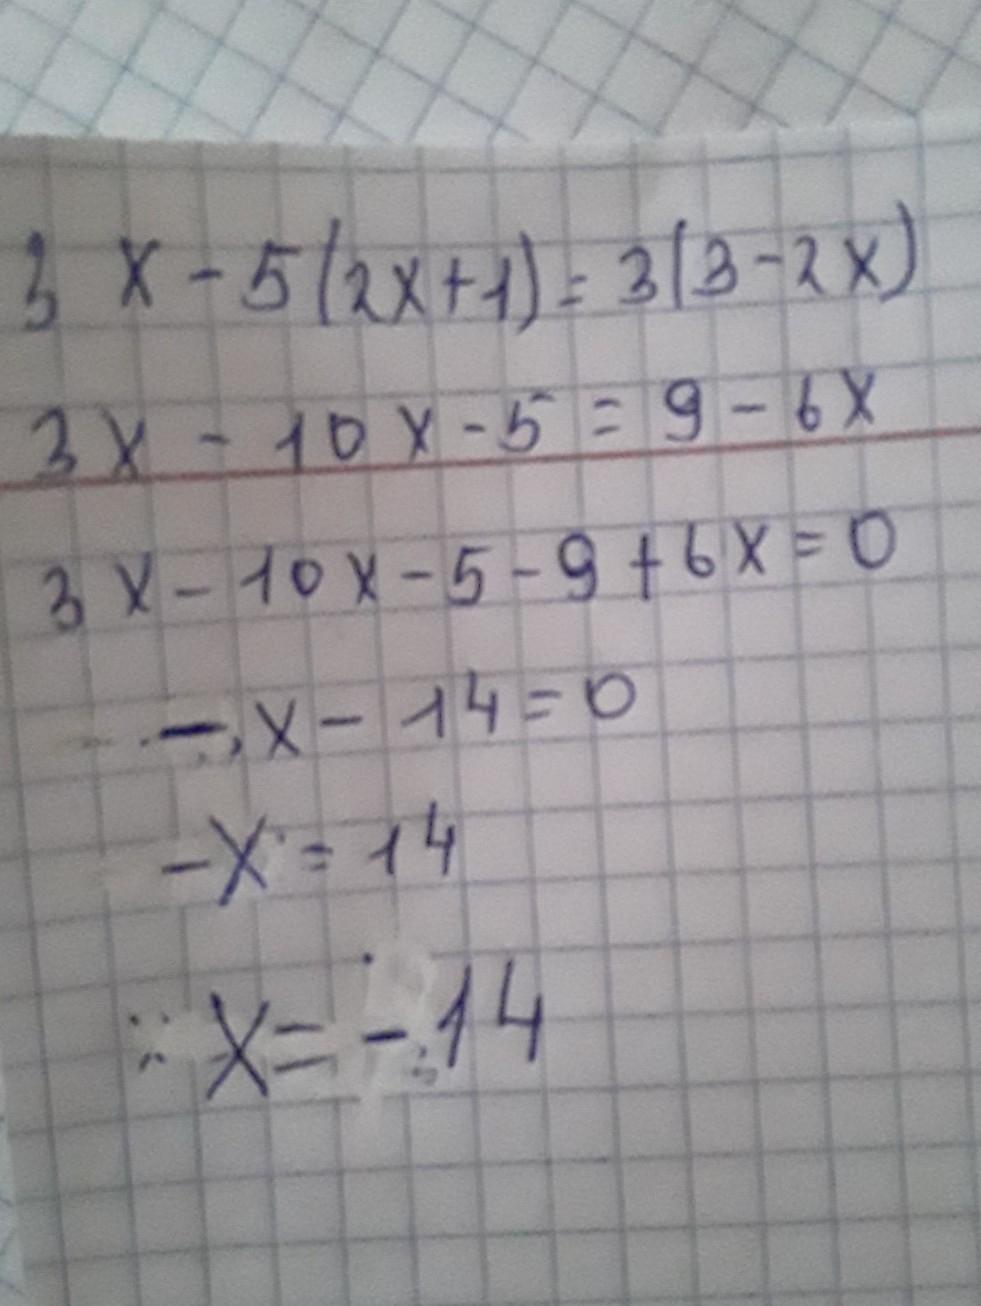 3x-5(2x+1)=3(3-2x)
3x-10x-5=9-6x
3x-10x-5-9+6x=0
-x-14=0
-x=14
x=-14